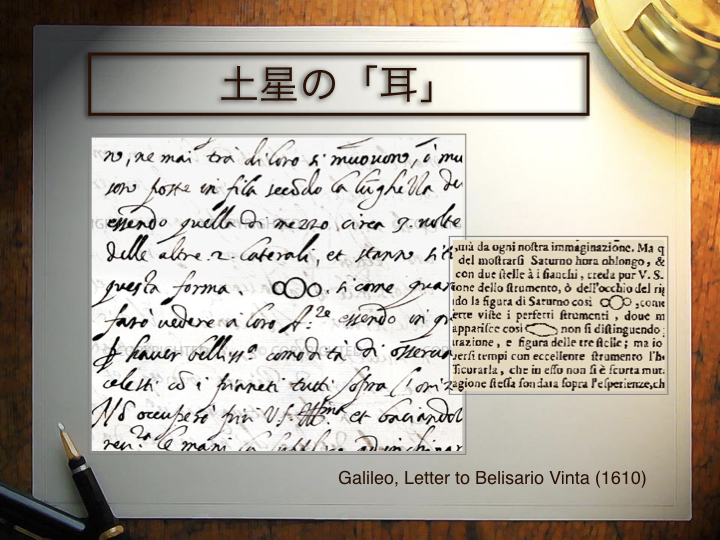 土星の「耳」
no, ne mai tra di loro si muovono, et mu
son poste in fila secōdo la lūghezza del
essendo quella di mezzo circa 3. volte
delle altre 2. laterali, et stanno siti
questa forma. oOo. si come quan
farò vedere a loro A.ze essendo in qu
haver belliss.a comodità di osservar
celesti et i pianeti tutti sopra l'oriz
et baciandol
le mani
,mà da ogni nostra immaginazione. Ma q
del mostrarsi Saturno hora oblongo, &
con due stelle à i fianchi, creda pur V. S.
ione dello strumento, ò dell'occhio del rig
ndo la figura di Saturno così oOo ,come
ette viste i perfetti strumenti , doue m
apparisce così non si distinguendo
urazione , e figura delle tre stelle ; ma io
versi tempi con eccellente strumento l'ho
ficurarla , che in esso non si è scorta mut.
agione stessa fondata sopra l'esperienze,ch
Galileo, Letter to Belisario Vinta (1610)